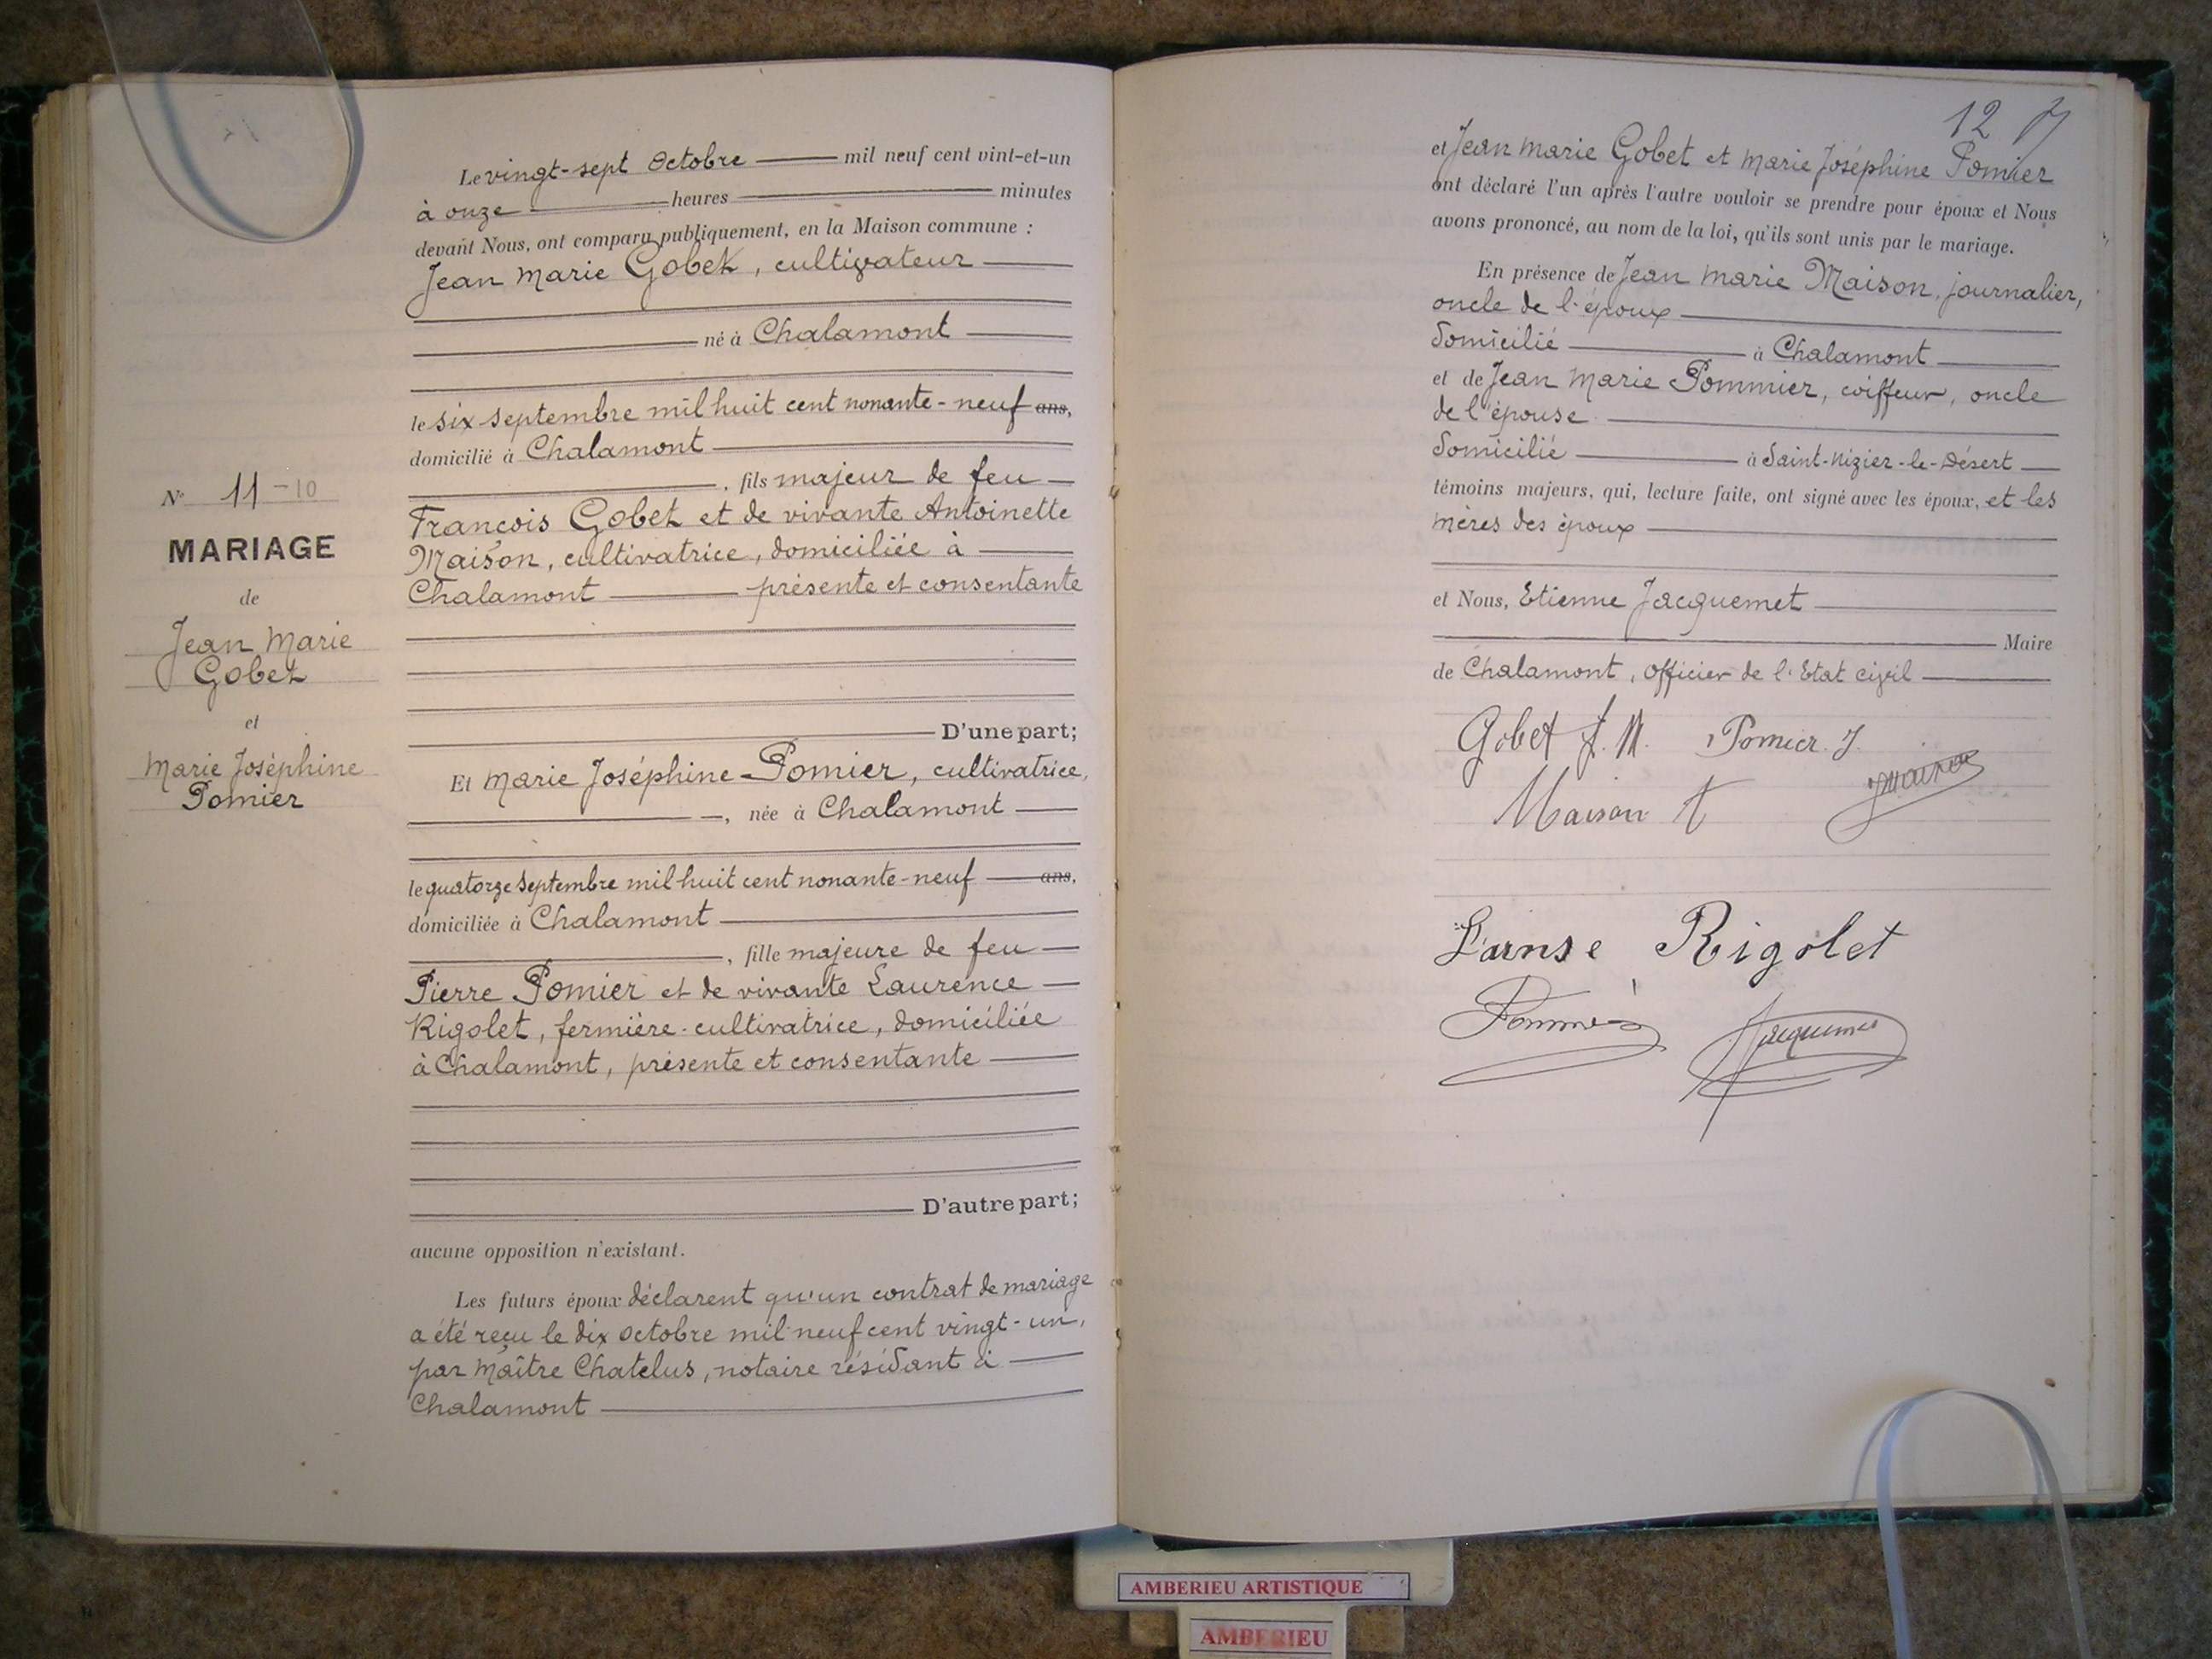 Le vingt-sept Octobre mil neuf cent vint-et-un
à onze heures minutes
devant Nous, ont comparu publiquement, en la Maison commune :
Jean Marie Gobet, cultivateur
né à Chalamont
le six septembre mil huit cent nonante-neuf ans,
domicilié à Chalamont
, fils majeur de feu
François Gobet et de vivante Antoinette
Maison, cultivatrice, domiciliée à
Chalamont présente et consentante
D'une part;
Et Marie Joséphine Pomier, cultivatrice,
, née à Chalamont
le quatorze Septembre mil huit cent nonante-neuf ans,
domiciliée à Chalamont
, fille majeure de feu
Pierre Pomier et de vivante Laurence
Rigolet, fermière-cultivatrice, domiciliée
à Chalamont, présente et consentante
D'autre part;
aucune opposition n'existant.
Les futurs époux déclarent qu'un contrat de mariage
a été reçu le dix Octobre mil neuf cent vingt-un,
par Maître Chatelus, notaire résidant à
Chalamont
N° 11 - 10
MARIAGE
de
Jean Marie
Gobet
et
Marie Joséphine
Pomier
12
et Jean Marie Gobet et Marie Joséphine Pomier
ont déclaré l'un après l'autre vouloir se prendre pour époux et Nous
avons prononcé, au nom de la loi, qu'ils sont unis par le mariage.
En présence de Jean Marie Maison, journalier,
oncle de l'époux
domicilié à Chalamont
et de Jean Marie Pommier, coiffeur, oncle
de l'épouse
domicilié à Saint-Nizier-le-Désert
témoins majeurs, qui, lecture faite, ont signé avec les époux, et les
mères des époux
et Nous, Etienne Jacquemet
Maire
de Chalamont, Officier de l'Etat civil
Gobet J. M. Pomier. J.
Maison
Rigolet
Jacquemet
AMBERIEU ARTISTIQUE
AMBERIEU